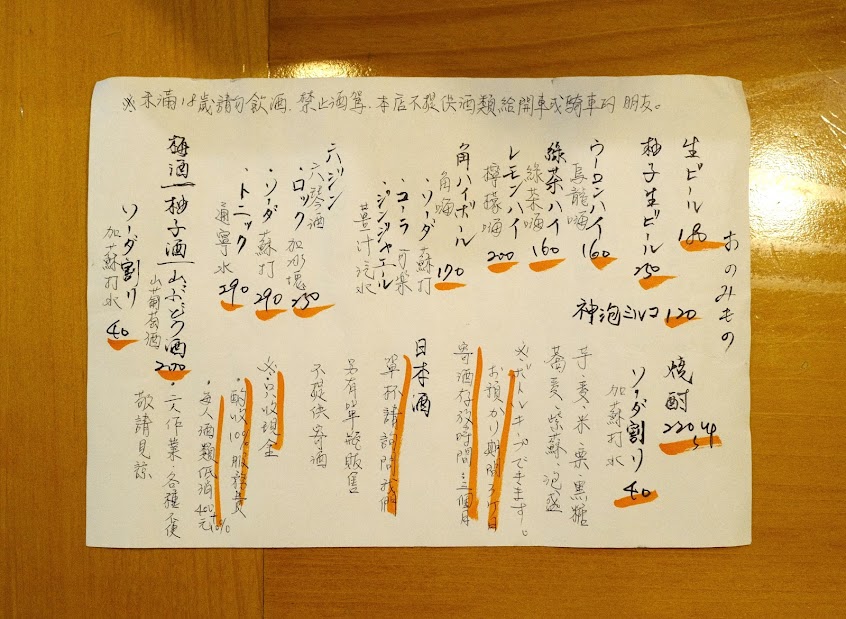 ※未滿18歲請勿飲酒.禁止酒駕.本店不提供酒類給開車或騎車的朋友。
おのみもの
生ビール 180
柚子生ビール 250
神泡ミルコ 120
ウーロンハイ
烏龍嗨 160
綠茶ハイ
綠茶嗨 160
レモンハイ
檸檬嗨 200
角ハイボール
角嗨 170
・ソーダ 蘇打
・コーラ 可樂
・ジンジャエール
薑汁汽水
六ジン
六琴酒
・ロック 加冰塊 250
・ソーダ 蘇打 290
・トニック
通寧水 290
梅酒|柚子酒|山ぶどう酒 200
山葡萄酒
ソーダ割り
加蘇打水 40
焼酎 220 up
ソーダ割り
加蘇打水 40
芋・麦・米・栗・黒糖
蕎麦・紫蘇・泡盛
※ボトルキープできます。
お預かり期間3ケ月
寄酒存放時間:三個月
日本酒
單杯請詢問我們
另有單瓶販售
不提供寄酒
※只收現金
・酌收10%服務費
・每人酒類低消400元+10%
・一人作業・各種不便
敬請見諒